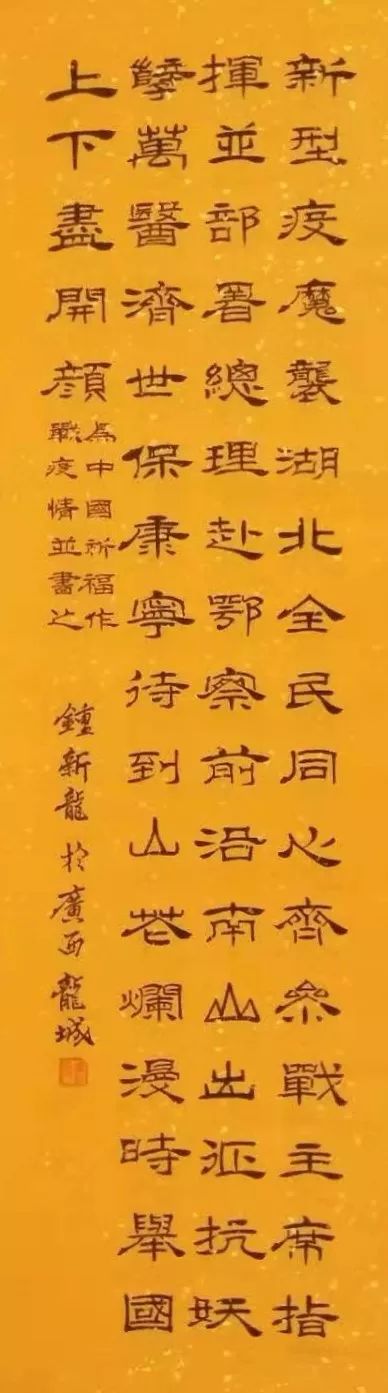 新型疫魔襲湖北全民同心齊參戰主席指
揮並部署總理赴鄂察前沿南山出征抗妖
孽萬醫濟世保康寧待到山花爛漫時舉國
上下盡開顏
為中國祈福作
戰疫情並書之
鍾新龍於廣西龍城